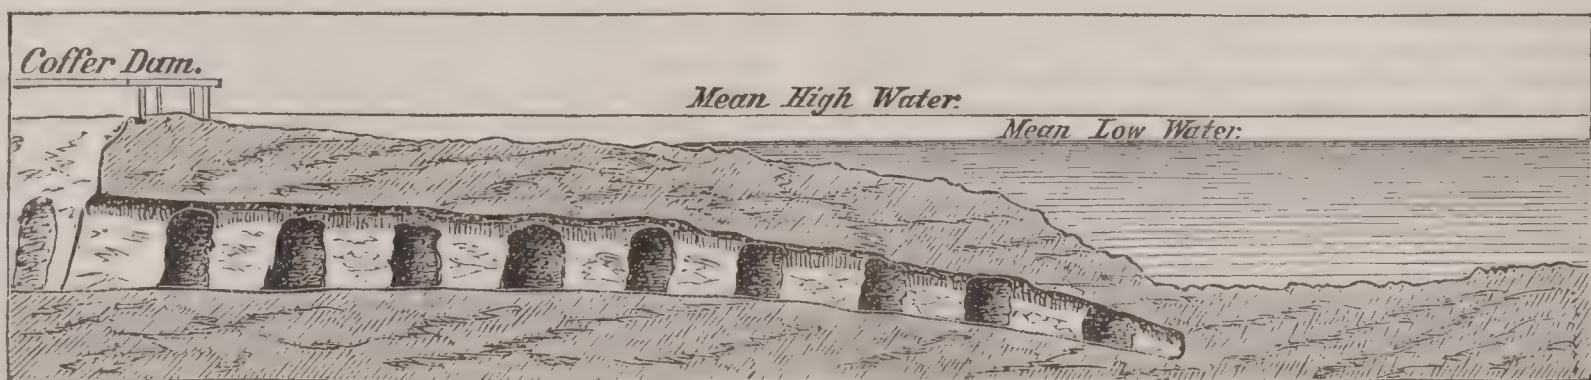 Coffer Dam.
Mean High Water.
Mean Low Water.